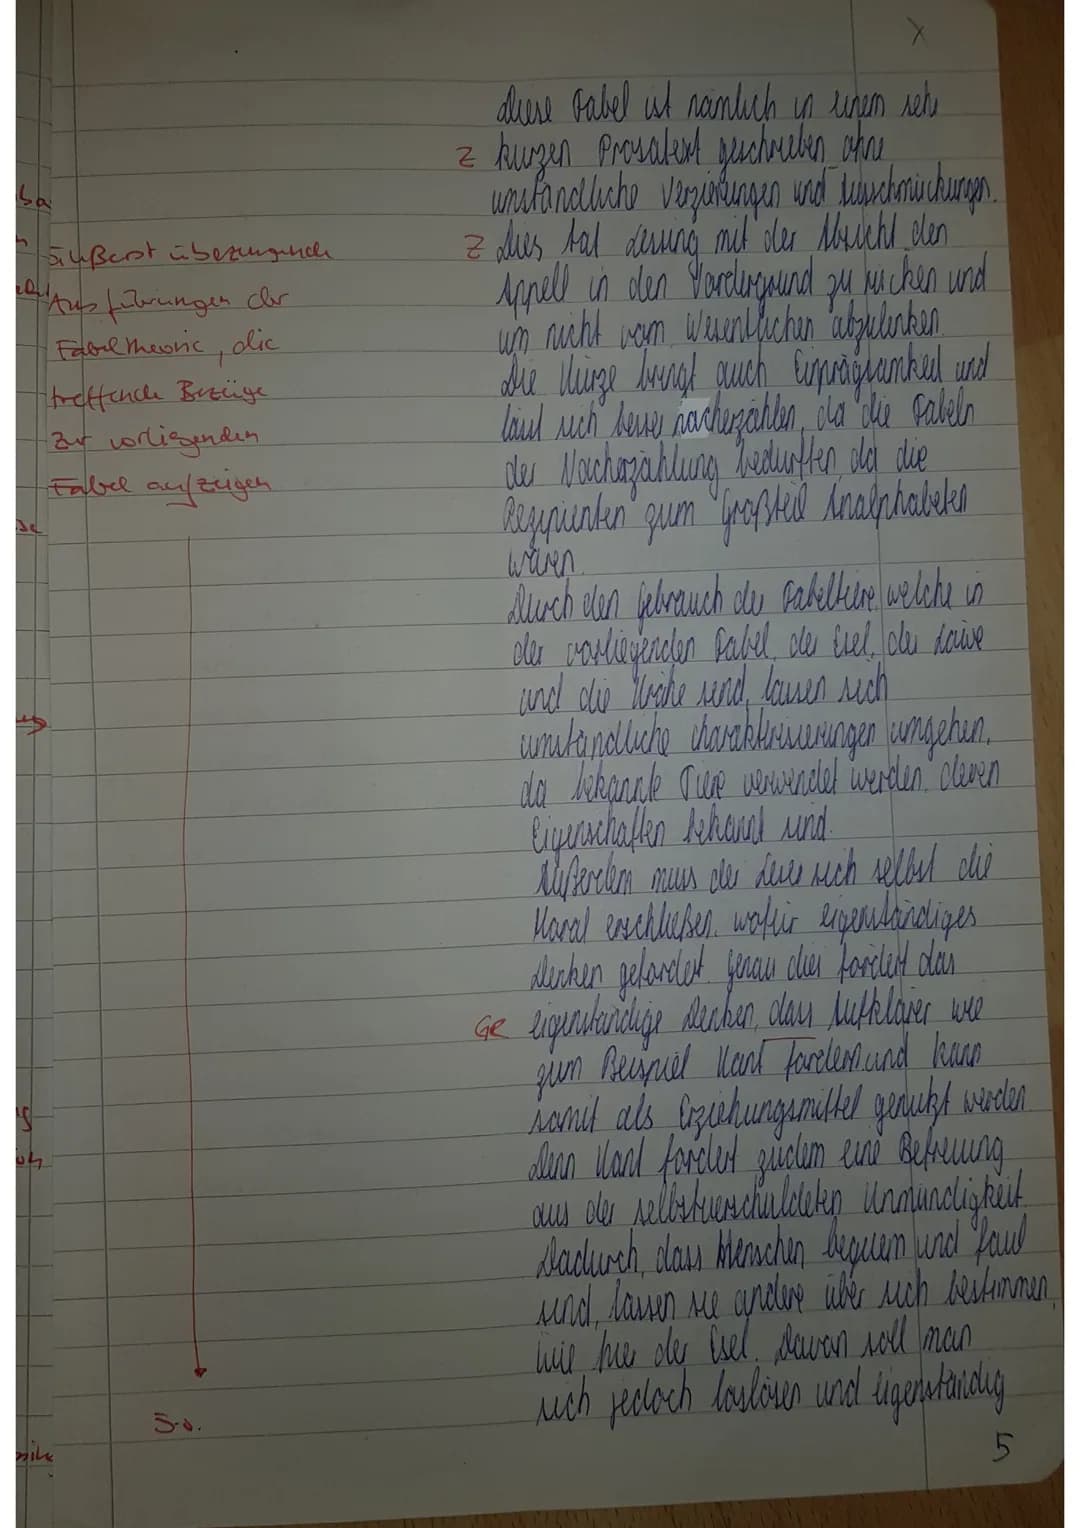 X
diese Fabel ist nämlich in einem sehr
Z kurzen Prosatext geschrieben ohne
umständliche Verzierungen und Ausschmückungen.
Z Dies tat Lessing mit der Absicht den
Appell in den Vordergrund zu rücken und
um nicht vom Wesentlichen abzulenken.
Die Kürze bringt auch Einprägsamkeit und
lässt sich besser nacherzählen, da die Fabeln
der Nacherzählung bedurften, da die
Rezipienten zum Großteil Analphabeten
waren.
Durch den Gebrauch der Fabeltiere, welche in
der vorliegenden Fabel, der Esel, der Löwe
und die Krähe send, lassen sich
umständliche charaktrisierungen umgehen,
da bekannte Tiere verwendet werden, deren
Eigenschaften bekannt sind.
Außerdem muss der Leser sich selbst die
Moral erschließen, wofür eigenständiges
Denken gefordert. Genau dies fordert das
Gr eigenständige Denken, dass Aufklärer wie
zum Beispiel Kant fordern und kann
somit als Erziehungsmittel genutzt werden.
Denn Kant fordert zudem eine Befreiung
aus der selbstverschuldeten Unmündigkeit.
Dadurch, dass Menschen bequem und faul
sind, lassen sie andere über sich bestimmen,
wie hier der Esel. Davon soll man
sich jedoch loslösen und eigenständig
5
äußerst überzeugende
Ausführungen der
Fabeltheorie, die
treffende Bezüge
zur vorliegenden
Fabel aufzeigen
s.o.